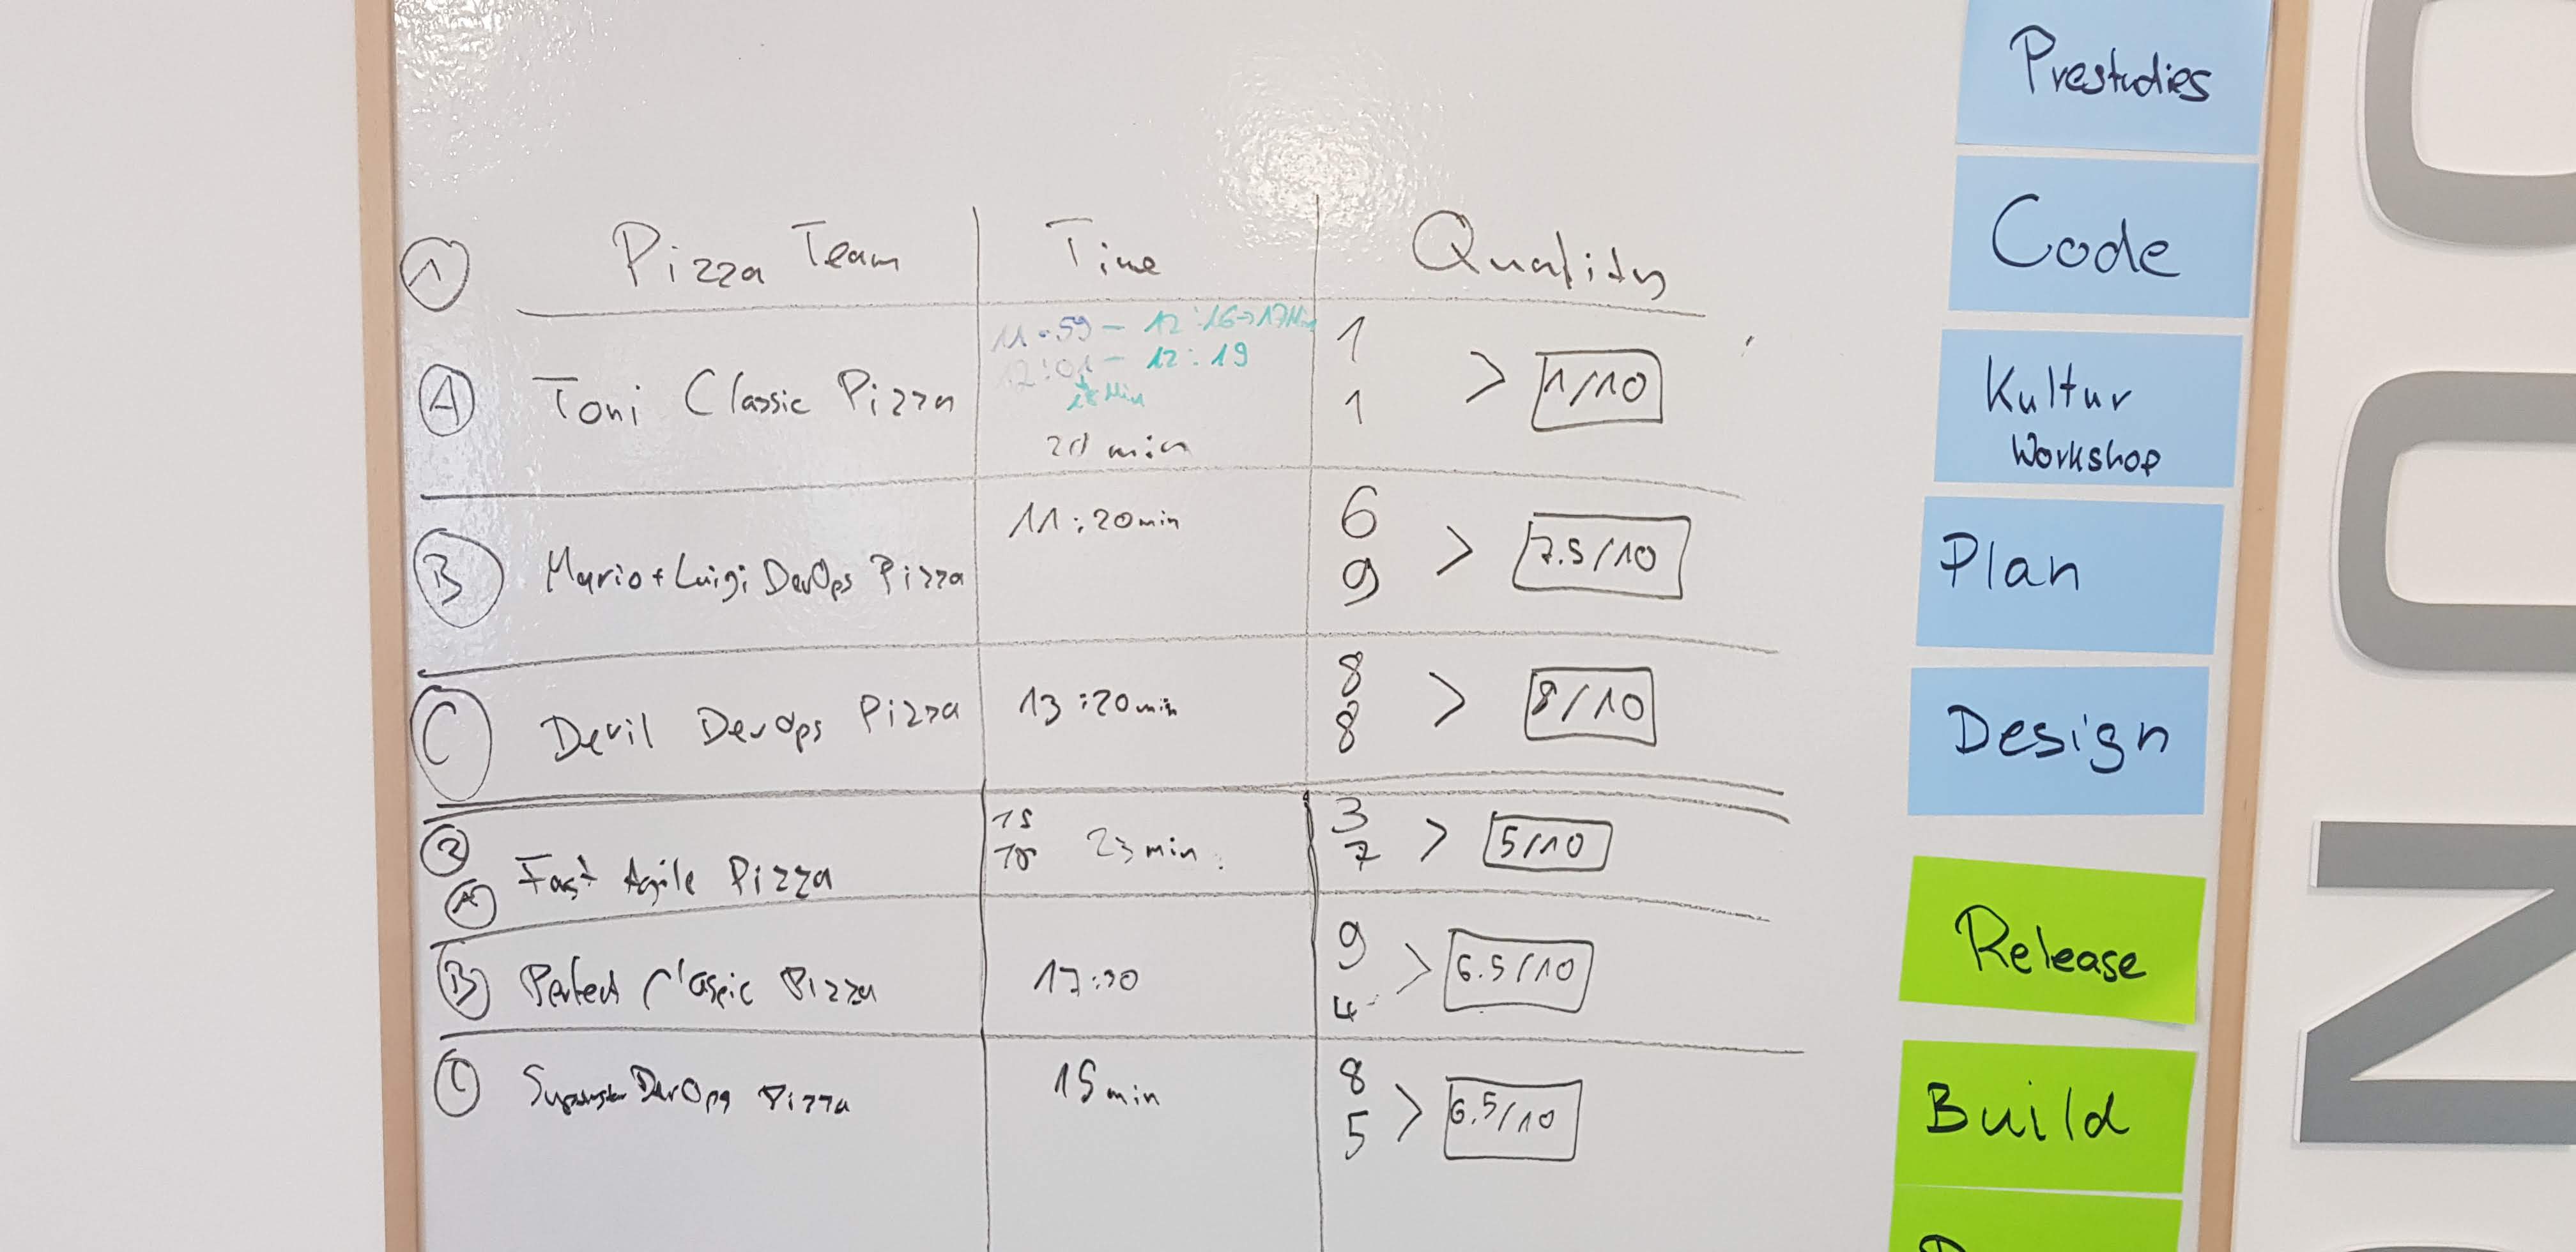 1 Pizza Team Time Quality
11:59 - 12:16 → 17 Min
12:01 - 12:19
18 Min
A Toni Classic Pizza
20 min
1
1
> 1/10
B Mario + Luigi DevOps Pizza
11:20min
6
9
> 7.5/10
C Devil DevOps Pizza
13:20min
8
8
> 8/10
2
A Fast Agile Pizza
15
23 min
3
7
> 5/10
B Perfect Classic Pizza
9
4
> 6.5/10
C DevOps Pizza
15 min
8
5
> 6.5/10
Prestudies
Code
Kultur
Workshop
Plan
Design
Release
Build